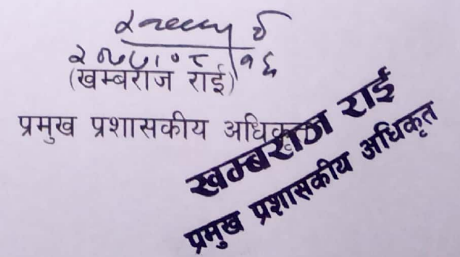 (खम्बराज राई)
प्रमुख प्रशासकीय अधिकृत
खम्बराज राई
प्रमुख प्रशासकीय अधिकृत